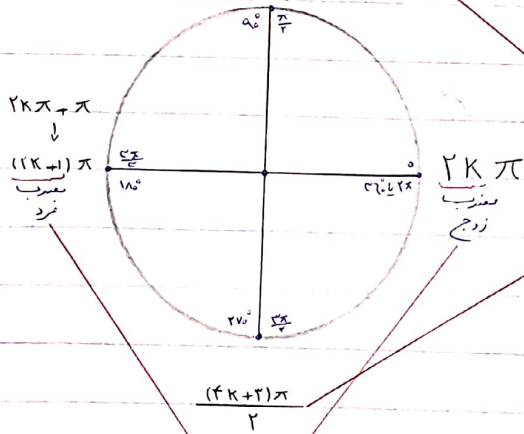 ۹۰° π/۲
۲Kπ+π
↓
(۲K+۱)π
مضرب
فرد
۱۸۰°
۰
۲π یا ۳۶۰°
۲Kπ
مضرب
زوج
۲۷۰° ۳π/۲
(۴K+۳)π/۲